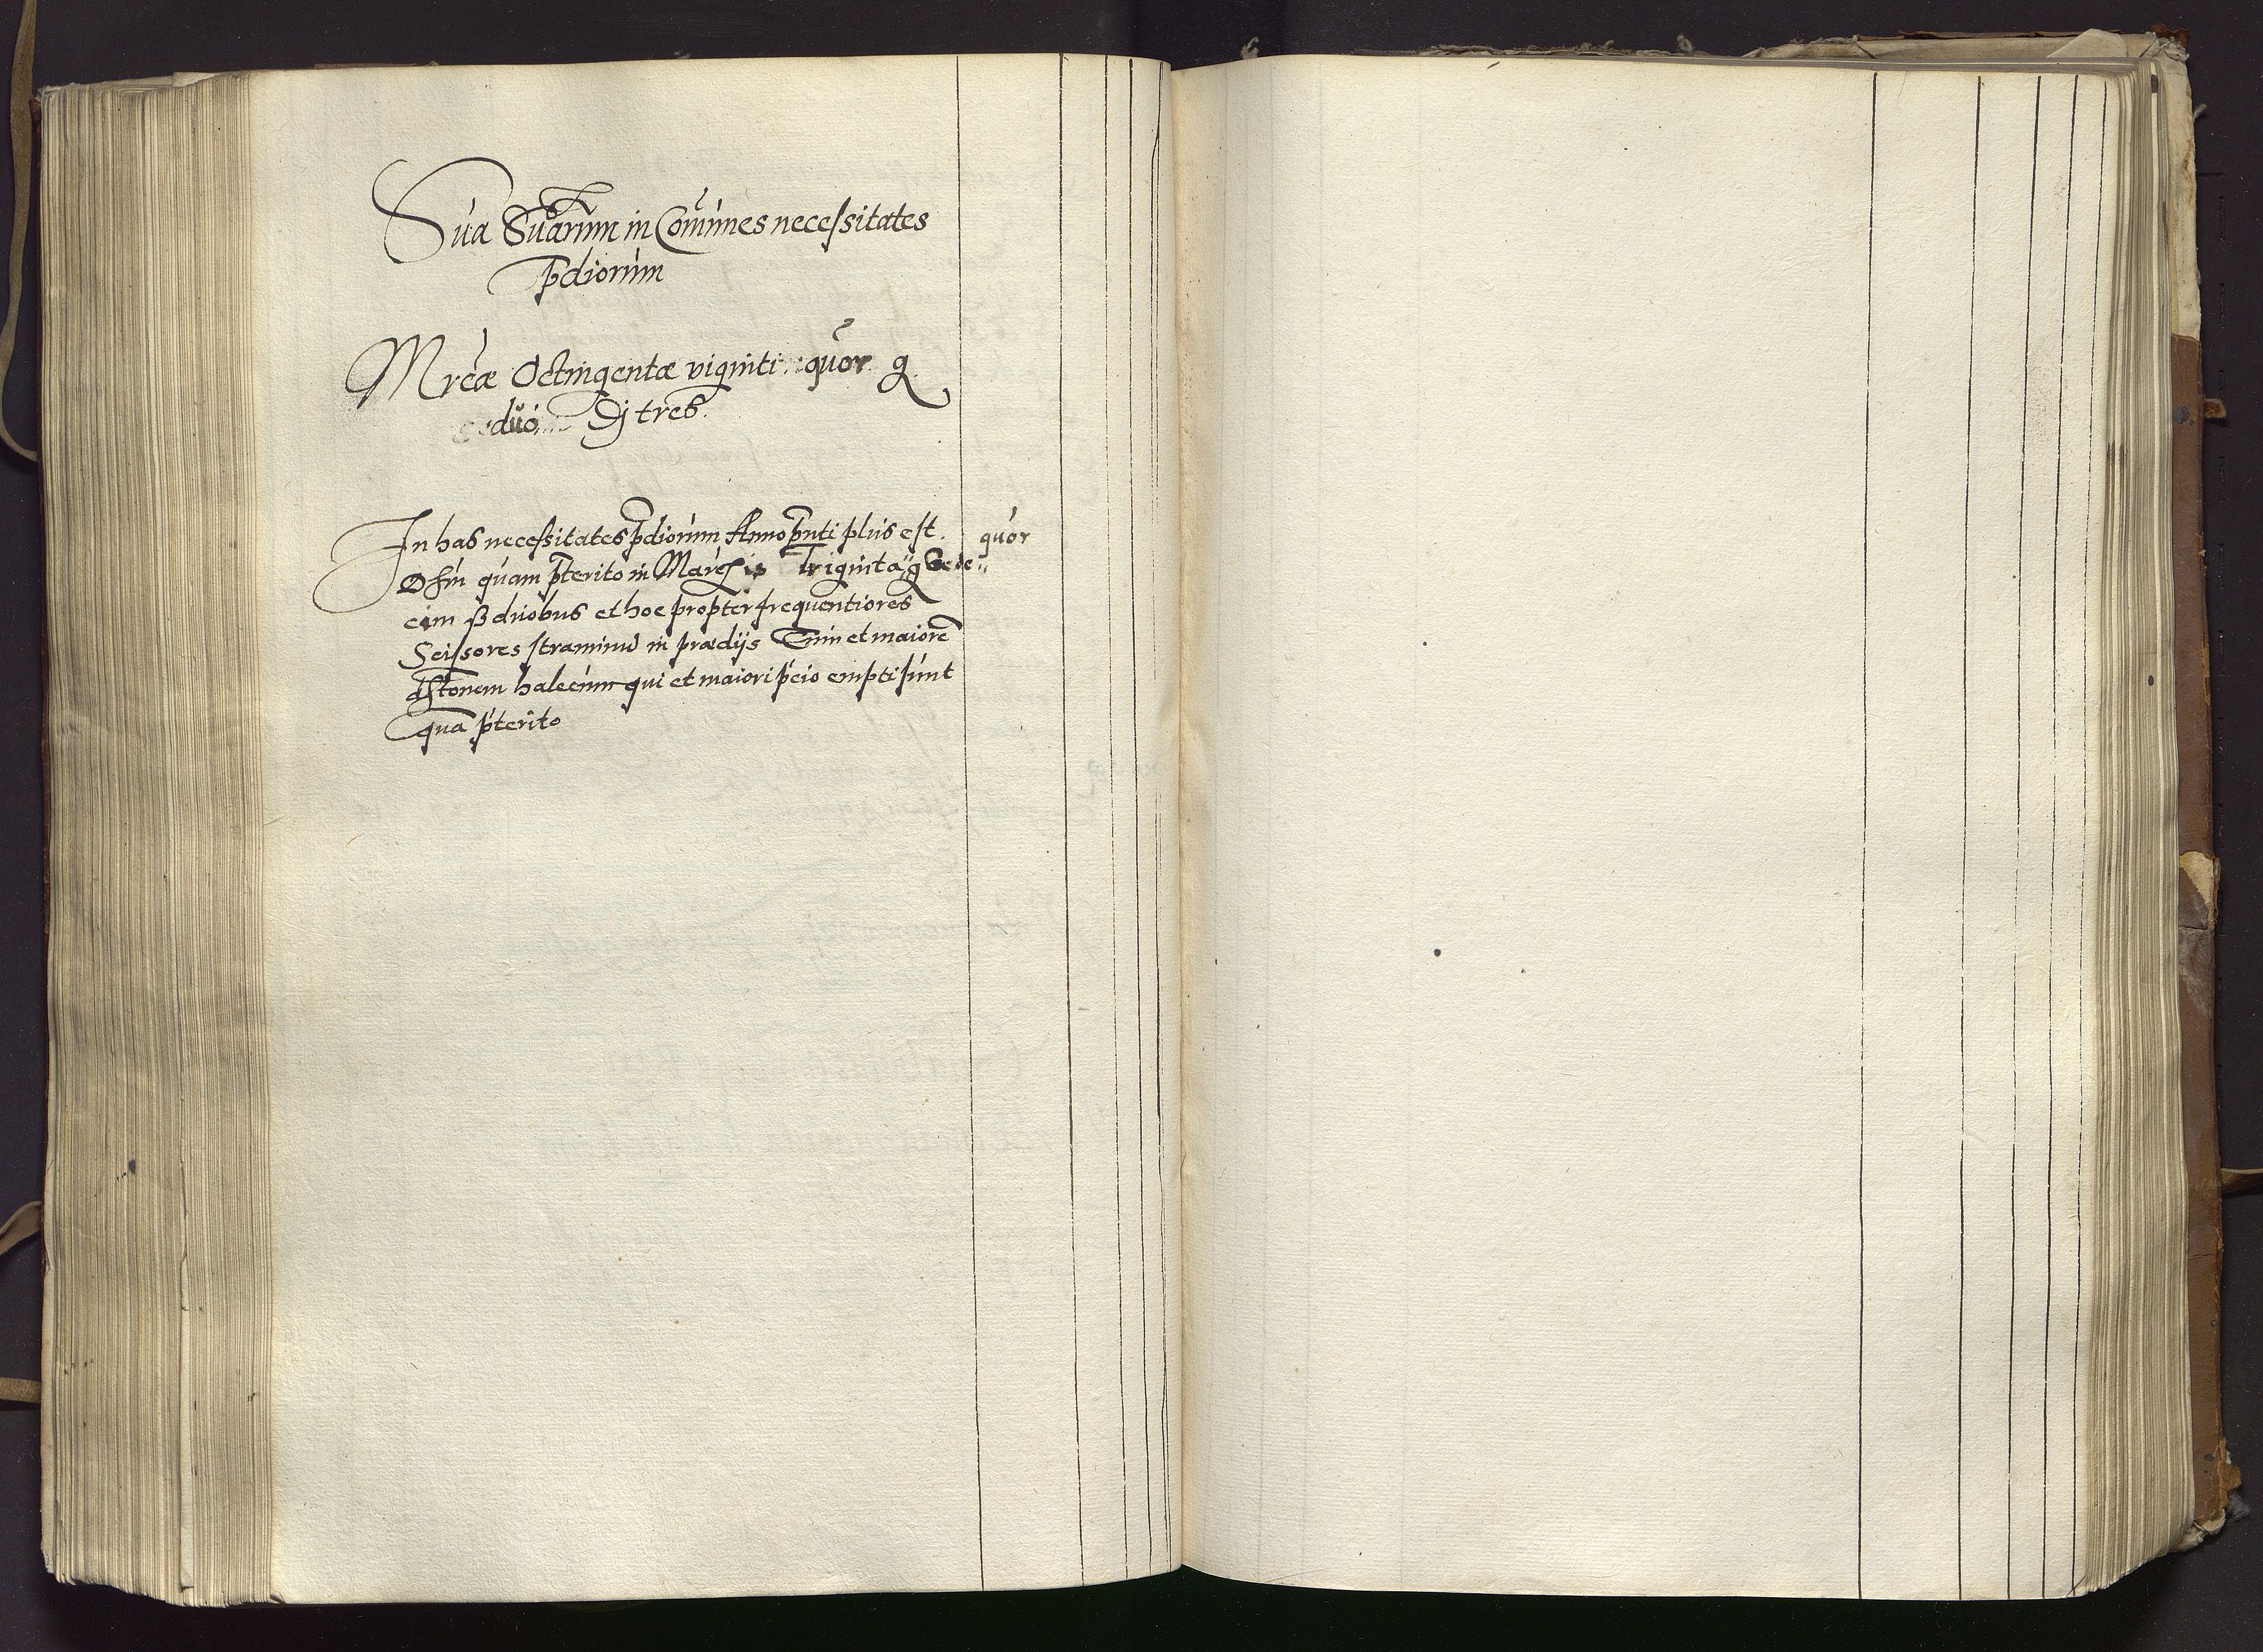 Sūa Sūarūm in Comūnes necessitates
p̄diorūm
Mrcæ Octingentæ viginti quor g
duo ₰ tres.
In has necessitates p̄diorūm Anno p̄nti plus est. quor
quam p̄terito in Marcis Triginta g
cim ß duobus et hoc propter frequentiores
Scissores straminū in prædijs Tum et maiorē
halecūm qui et maiori p̄cio empti sunt
qua p̄terito